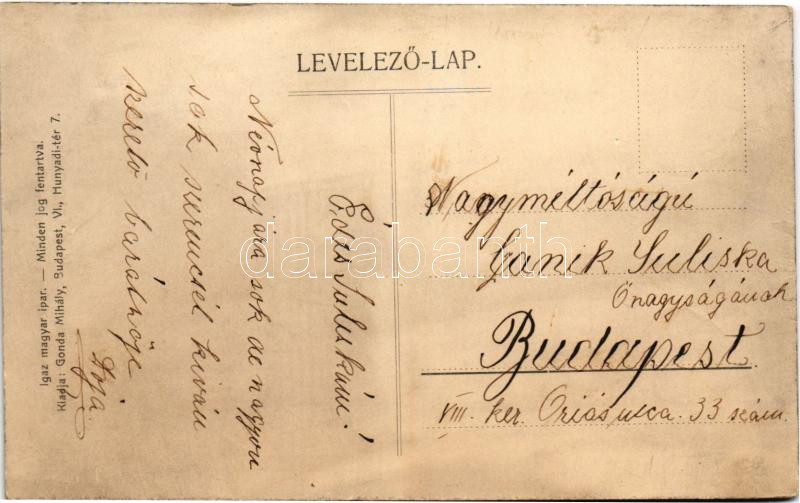 LEVELEZŐ-LAP.
Édes Juliskám!
Névnapjára sok de nagyon
sok szerencsét kíván
szerető barátnője
Igaz magyar ipar. — Minden jog fentartva.
Kiadja: Gonda Mihály, Budapest, VI., Hunyadi-tér 7.
Nagyméltóságú
Juliska
Őnagyságának
Budapest.
VIII. ker. Óriás utca. 33 szám.
darabanth